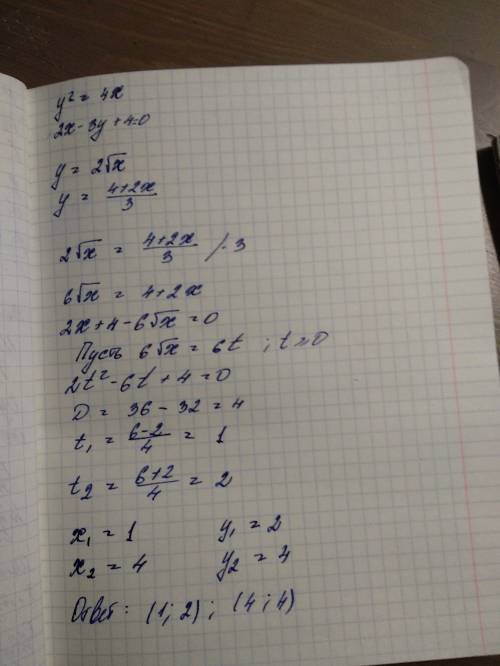 y² = 4x
2x - 3y + 4=0
y = 2√x
y = (4+2x)/3
2√x = (4+2x)/3 /·3
6√x = 4+2x
2x+4-6√x = 0
Пусть 6√x = 6t ; t≥0
2t² - 6t + 4 = 0
D = 36 - 32 = 4
t₁ = (6-2)/4 = 1
t₂ = (6+2)/4 = 2
x₁ = 1 y₁ = 2
x₂ = 4 y₂ = 4
Ответ: (1; 2) ; (4; 4)